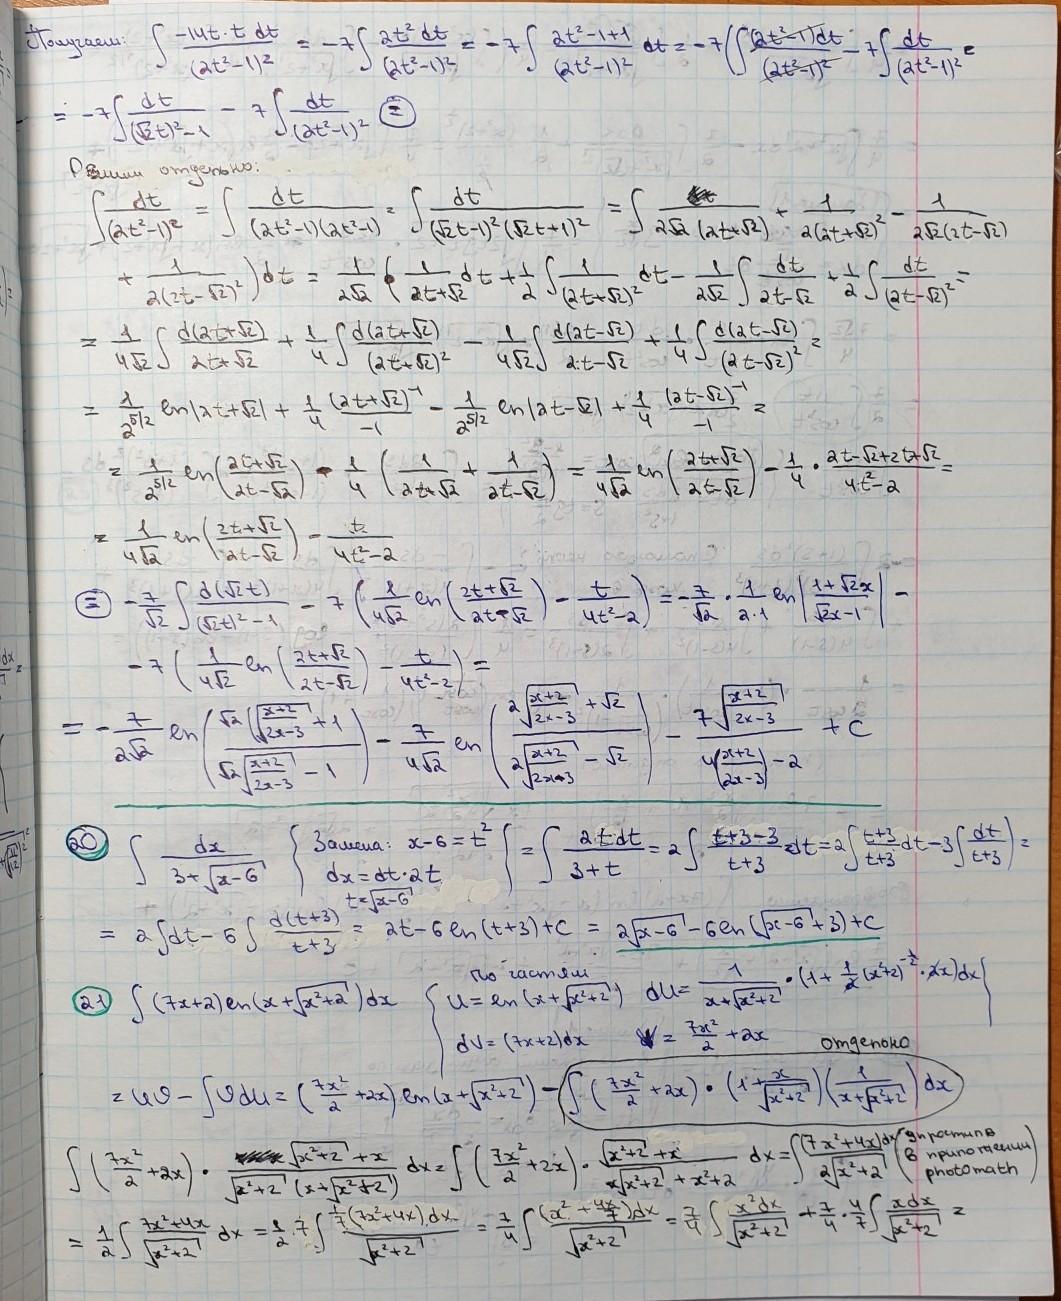 Получаем: ∫ -14t·t dt / (2t²-1)² = -7∫ 2t² dt / (2t²-1)² = -7∫ (2t²-1+1) / (2t²-1)² dt = -7(∫ (2t²-1)dt / (2t²-1)² - 7∫ dt / (2t²-1)² =
= -7∫ dt / ((√2t)²-1) - 7∫ dt / (2t²-1)² ⊜
Решим отдельно:
∫ dt / (2t²-1)² = ∫ dt / ((2t²-1)(2t²-1)) = ∫ dt / ((√2t-1)²(√2t+1)²) = ∫ / 2√2(2t+√2) + 1 / 2(2t+√2)² - 1 / 2√2(2t-√2)
+ 1 / 2(2t-√2)²) dt = 1/2√2 ∫ 1 / (2t+√2) dt + 1/2 ∫ 1 / (2t+√2)² dt - 1/2√2 ∫ dt / (2t-√2) + 1/2 ∫ dt / (2t-√2)² =
= 1/4√2 ∫ d(2t+√2) / (2t+√2) + 1/4 ∫ d(2t+√2) / (2t+√2)² - 1/4√2 ∫ d(2t-√2) / (2t-√2) + 1/4 ∫ d(2t-√2) / (2t-√2)² =
= 1/2^(5/2) ln|2t+√2| + 1/4 (2t+√2)⁻¹ / -1 - 1/2^(5/2) ln|2t-√2| + 1/4 (2t-√2)⁻¹ / -1 =
= 1/2^(5/2) ln((2t+√2) / (2t-√2)) - 1/4 (1 / (2t+√2) + 1 / (2t-√2)) = 1/4√2 ln((2t+√2) / (2t-√2)) - 1/4 · (2t-√2+2t+√2) / (4t²-2) =
= 1/4√2 ln((2t+√2) / (2t-√2)) - t / (4t²-2)
⊜ -7/√2 ∫ d(√2t) / ((√2t)²-1) - 7(1/4√2 ln((2t+√2) / (2t-√2)) - t / (4t²-2)) = -7/√2 · 1/2·1 ln|(1+√2x) / (√2x-1)| -
-7(1/4√2 ln((2t+√2) / (2t-√2)) - t / (4t²-2)) =
= -7/2√2 ln((√2(√((x+2)/(2x-3)) + 1) / (√2√((x+2)/(2x-3)) - 1)) - 7/4√2 ln((2√((x+2)/(2x-3)) + √2) / (2√((x+2)/(2x-3)) - √2)) - 7√((x+2)/(2x-3)) / (4((x+2)/(2x-3)) - 2) + C
20 ∫ dx / (3+√(x-6)) { Замена: x-6 = t²
dx = dt·2t
t=√(x-6) } = ∫ 2t dt / (3+t) = 2∫ (t+3-3) / (t+3) dt = 2∫ (t+3)/(t+3) dt - 3∫ dt / (t+3)) =
= 2∫dt - 6∫ d(t+3) / (t+3) = 2t - 6 ln(t+3) + C = 2√(x-6) - 6 ln(√(x-6)+3) + C
21 ∫ (7x+2) ln(x+√(x²+2)) dx { по частям
U = ln(x+√(x²+2)) dU = 1 / (x+√(x²+2)) · (1+ 1/2 (x²+2)^(-1/2) · 2x)dx
dV = (7x+2)dx V = 7x²/2 + 2x }
отдельно
= UV - ∫VdU = (7x²/2 + 2x) ln(x+√(x²+2)) - ∫ (7x²/2 + 2x) · (1 + x/√(x²+2)) (1 / (x+√(x²+2))) dx
∫ (7x²/2 + 2x) · (√(x²+2) + x) / (√(x²+2) (x+√(x²+2))) dx = ∫ (7x²/2 + 2x) · (√(x²+2) + x) / (x√(x²+2) + x²+2) dx = ∫ (7x²+4x)dx / 2√(x²+2) (упростив в приложении photomath)
= 1/2 ∫ (7x²+4x) / √(x²+2) dx = 1/2 · 7∫ 1/7(7x²+4x)dx / √(x²+2) = 7/4 ∫ (x² + 4x/7)dx / √(x²+2) = 7/4 ∫ x²dx / √(x²+2) + 7/4 · 4/7 ∫ xdx / √(x²+2) =